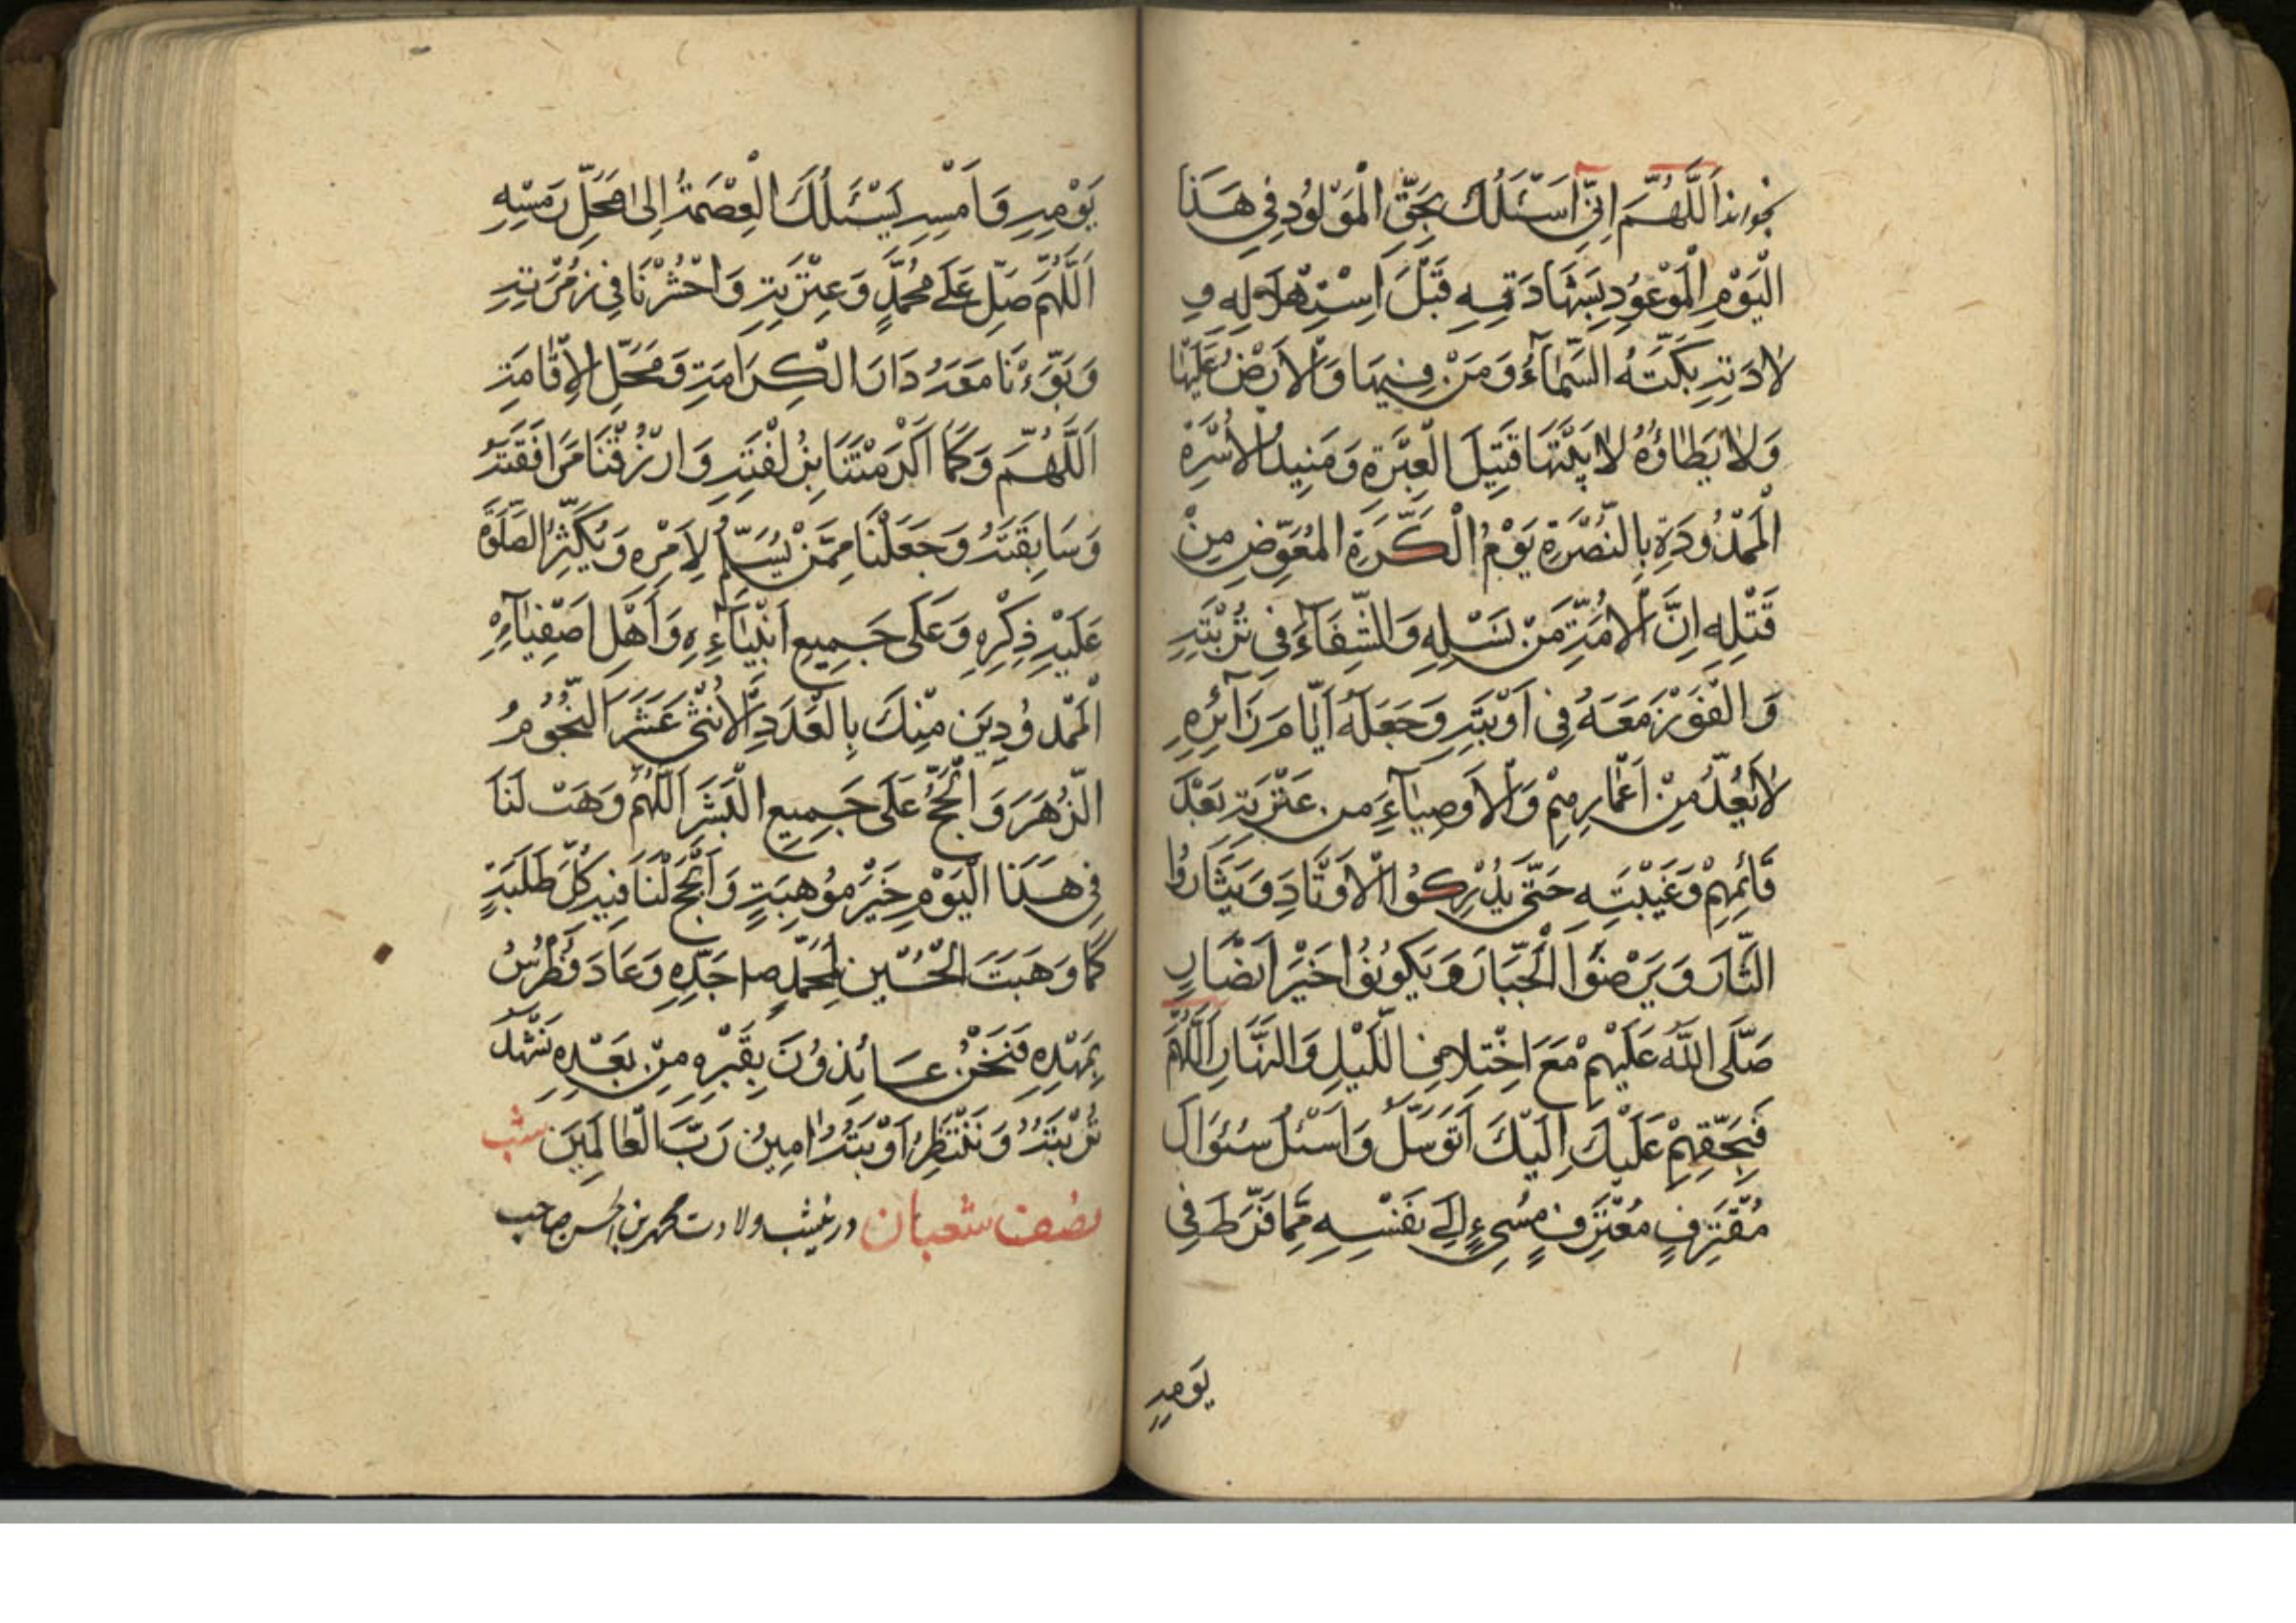 بخواند اَللّٰهُمَّ اِنّى اَسْئَلُكَ بِحَقِّ الْمَوْلُودِ فى هَذَا
الْيَوْمِ الْمَوْعُودِ بِشَهَادَتِهِ قَبْلَ اسْتِهْلَالِهِ وِ
لَادَتِهِ بَكَتْهُ السَّمَآءُ وَمَنْ فِيهَا وَالْاَرْضُ عَلَيْهَا
وَلَا يَطَاؤُهُ لَابَتَيْهَا قَتِيلَ الْعَبْرَةِ وَسَيِّدُ الْاُسْرَةِ
الْمَمْدُودَةِ بِالنُّصْرَةِ يَوْمُ الْكَرَّةِ الْمُعَوَّضِ مِنْ
قَتْلِهِ اِنَّ الْاَئِمَّةِ مِنْ نَسْلِهِ وَالشِّفَآءَ فِى تُرْبَتِهِ
وَالْفَوْزَ مَعَهُ فِى اَوْبَتِهِ وَجَعَلَهُ اَيَّامَ زَآئِرِهِ
لَا يُعَدُّ مِنْ اَعْمَارِهِمْ وَالْاَوصِيَآءِ من عِتْرَتِهِ بَعْدَ
قَائِمِهِمْ وَغَيْبَتِهِ حَتّى يُدْرِكُوا الْاَوْتَادَ وَيَثَارُوا
الثَّارَ وَيَرْضَوُا الْجَبَّارَ وَيَكُونُوا خَيْرَ اَنْصَارٍ
صَلَّى اللّٰهُ عَلَيْهِمْ مَعَ اخْتِلَافِ اللَّيْلِ وَالنَّهَارِ اَللّٰهُمَّ
فَبِحَقِّهِمْ عَلَيْكَ اِلَيْكَ اَتَوَسَّلُ وَاَسْئَلُ سُئوَالَ
مُقْتَرِفٍ مُعْتَرِفٍ مُسِىءٍ اِلى نَفْسِهِ مِمَّا فَرَّطَ فِى
يَومِهِ
يَوْمِهِ وَاَمْسِهِ يَسْئَلُكَ الْعِصْمَةُ اِلى مَحَلِّ رَمْسِهِ
اَللّٰهُمَّ صَلِّ عَلى مُحَمَّدٍ وَعِتْرَتِهِ وَاحْشُرْنَا فِى زُمْرَتِهِ
وَبَوِّءْنَا مَعَهُ دَارَ الْكِرَامَةِ وَمَحَلِّ الْاِقَامَةِ
اَللّٰهُمَّ وَكَمَا اَكْرَمْتَنَا بِزُلْفَتِهِ وَارْزُقْنَا مَرَافَقَتَهُ
وَسَابِقَتَهُ وَجَعَلْنَا مِمَّنْ يُسَلِّمُ لِاَمْرِهِ وَيُكَثِّرُ الصَّلٰوةَ
عَلَيْهِ ذِكْرِهِ وَعَلَى جَمِيعِ اَنْبِيَآءِهِ وَاَهْلِ اَصْفِيَآءِهِ
الْمَمْدُودِينَ مِنْكَ بِالْعَدَدِ الْاِثْنى عَشَرَ النُّجُومُ
الزُّهَرَ وَالْحُجَجُ عَلَى جَمِيعِ الْبَشَرَ اَللّٰهُمَّ وَهَبْ لَنَا
فِى هَذَا الْيَوْمِ خَيْرَ مَوْهِبَةٍ وَاَنْجِحْ لَنَا فِيهِ كُلَّ طَلَبَةٍ
كَمَا وَهَبْتَ الْحُسَيْنِ لِمُحَمَّدٍ ص جَدِّهِ وَعَادَ فُطْرُسُ
بِمَهْدِهِ فَنَحْنُ عَائِذُونَ بِقَبْرِهِ مِنْ بَعْدِهِ نَشْهَدُ
تُرْبَتَهُ وَنَنْتَظِرُ اَوْبَتَهُ اٰمِينُ رَبَّ الْعَالَمِينَ شب
نصف شعبان در ينشب ولادت محمد بن الحسن صاحب